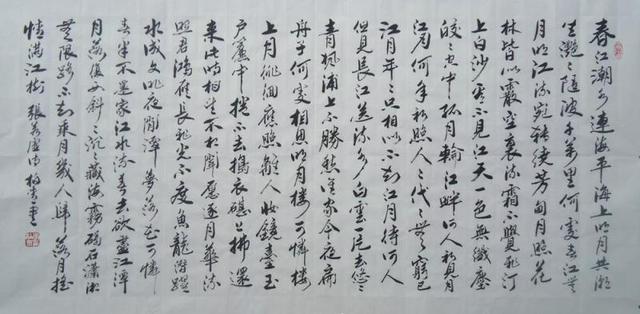 春江潮水連海平海上明月共潮
生灧〻隨波千萬里何處春江無
月明江流宛轉繞芳甸月照花
林皆似霰空裏流霜不覺飛汀
上白沙看不見江天一色無纖塵
皎〻空中孤月輪江畔何人初見月
江月何年初照人〻代〻無窮已
江月年〻只相似不知江月待何人
但見長江送流水白雲一片去悠〻
青楓浦上不勝愁誰家今夜扁
舟子何處相思明月樓可憐樓
上月徘徊應照離人妝鏡臺玉
戶簾中捲不去擣衣砧上拂還
來此時相望不相聞願逐月華流
照君鴻雁長飛光不度魚龍潛躍
水成文昨夜閒潭夢落花可憐
春半不還家江水流春去欲盡江潭
月落復西斜〻沉〻藏海霧碣石瀟湘
無限路不知乘月幾人歸落月搖
情滿江樹 張若虛詩